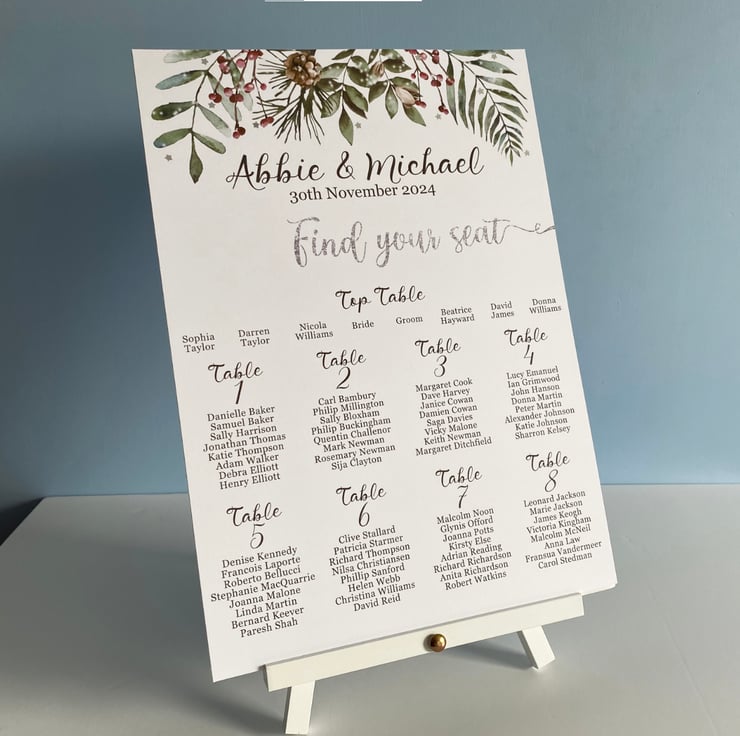 Abbie & Michael
30th November 2024
Find your seat
Top Table
Sophia Taylor
Darren Taylor
Nicola Williams
Bride
Groom
Beatrice Hayward
David James
Donna Williams
Table 1
Danielle Baker
Samuel Baker
Sally Harrison
Jonathan Thomas
Katie Thompson
Adam Walker
Debra Elliott
Henry Elliott
Table 2
Carl Bambury
Philip Millington
Sally Bloxham
Philip Buckingham
Quentin Challenor
Mark Newman
Rosemary Newman
Sija Clayton
Table 3
Margaret Cook
Dave Harvey
Janice Cowan
Damien Cowan
Saga Davies
Vicky Malone
Keith Newman
Margaret Ditchfield
Table 4
Lucy Emanuel
Ian Grimwood
John Hanson
Donna Martin
Peter Martin
Alexander Johnson
Katie Johnson
Sharron Kelsey
Table 5
Denise Kennedy
Francois Laporte
Roberto Bellucci
Stephanie MacQuarrie
Joanna Malone
Linda Martin
Bernard Keever
Paresh Shah
Table 6
Clive Stallard
Patricia Starmer
Richard Thompson
Nilsa Christiansen
Phillip Sanford
Helen Webb
Christina Williams
David Reid
Table 7
Malcolm Noon
Glynis Offord
Joanna Potts
Kirsty Else
Adrian Reading
Richard Richardson
Anita Richardson
Robert Watkins
Table 8
Leonard Jackson
Marie Jackson
James Keogh
Victoria Kingham
Malcolm McNeil
Anna Law
Fransua Vandermeer
Carol Stedman